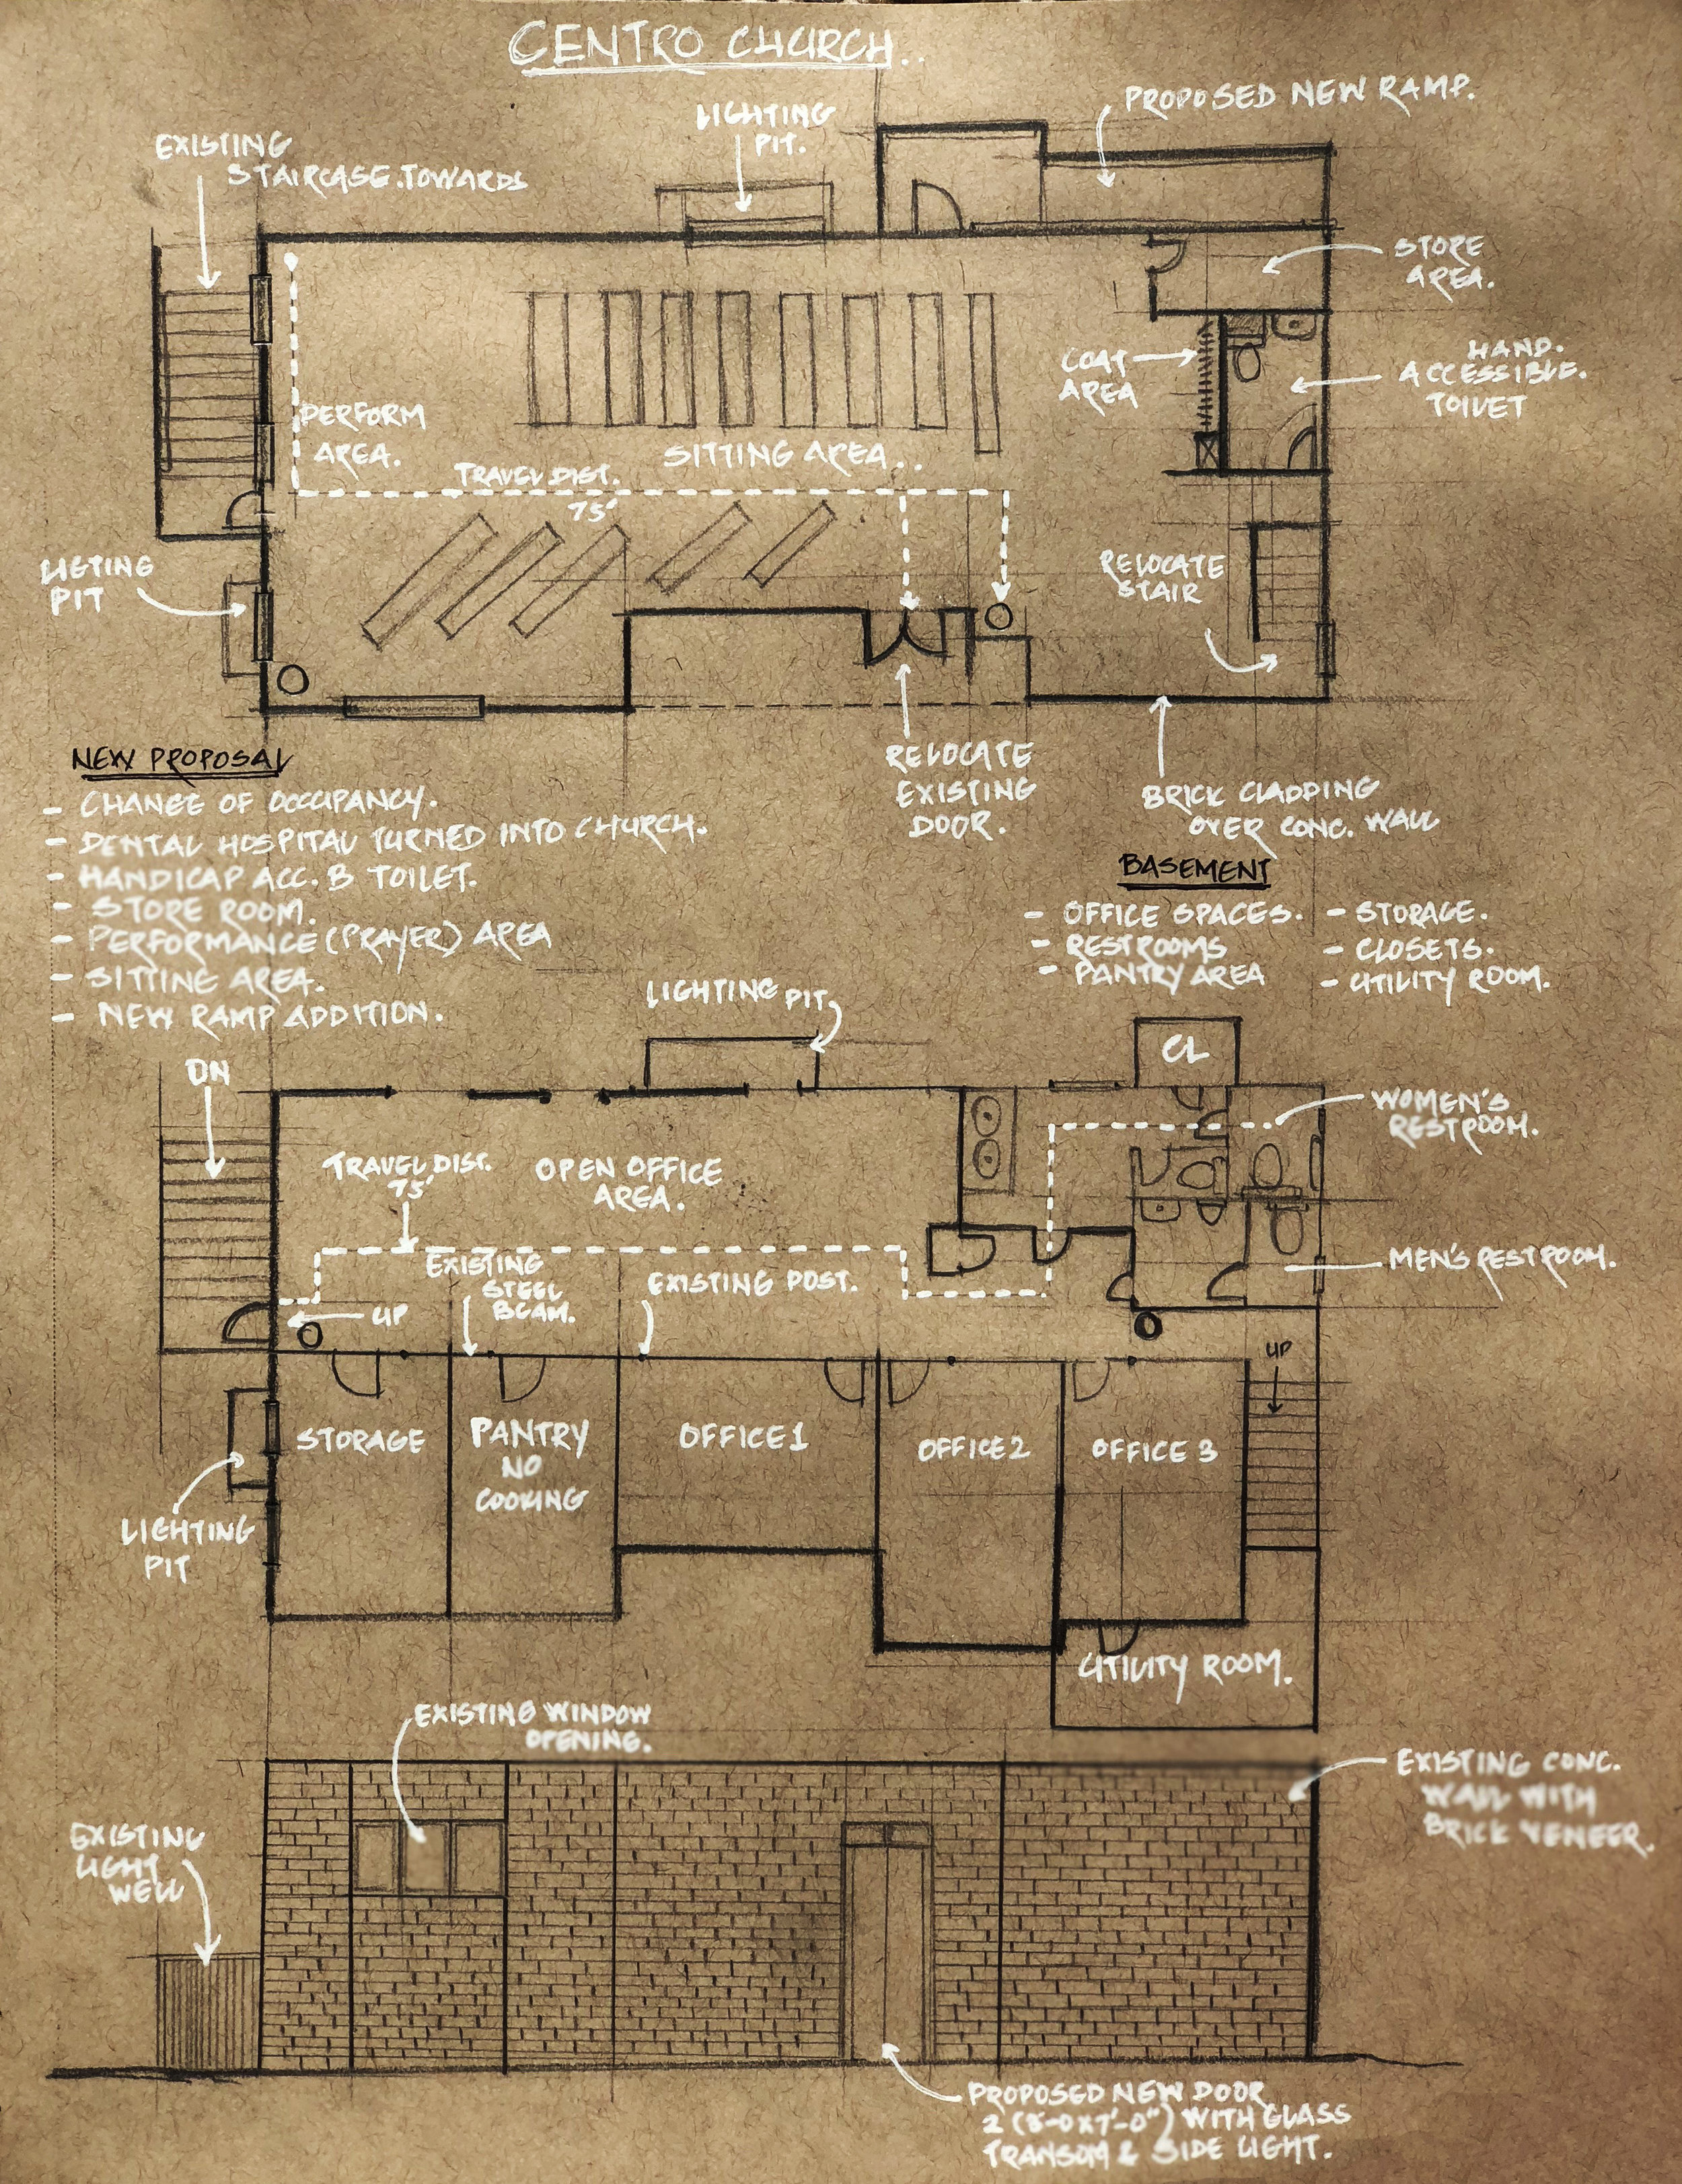 CENTRO CHURCH..
PROPOSED NEW RAMP.
LIGHTING
PIT.
EXISTING
STAIRCASE.TOWARDS
STORE
AREA.
COAT
AREA
HAND.
ACCESSIBLE.
TOILET
PERFORM
AREA.
SITTING AREA..
TRAVEL DIST.
75'
LIGTING
PIT
RELOCATE
STAIR
RELOCATE
EXISTING
DOOR.
BRICK CLADDING
OVER CONC. WALL
NEW PROPOSAL
- CHANGE OF OCCUPANCY.
- DENTAL HOSPITAL TURNED INTO CHURCH.
- HANDICAP ACC. B TOILET.
- STORE ROOM.
- PERFORMANCE (PRAYER) AREA
- SITTING AREA.
- NEW RAMP ADDITION.
BASEMENT
- OFFICE SPACES. - STORAGE.
- RESTROOMS - CLOSETS.
- PANTRY AREA - UTILITY ROOM.
LIGHTING PIT.
CL
DN
WOMEN'S
RESTROOM.
TRAVEL DIST.
75'
OPEN OFFICE
AREA.
EXISTING
STEEL
BEAM.
EXISTING POST.
MEN'S RESTROOM.
UP
UP
STORAGE
PANTRY
NO
COOKING
OFFICE 1
OFFICE 2
OFFICE 3
LIGHTING
PIT
UTILITY ROOM.
EXISTING WINDOW
OPENING.
EXISTING CONC.
WALL WITH
BRICK VENEER.
EXISTING
LIGHT
WELL
PROPOSED NEW DOOR
2 (8-0 X 7'-0") WITH GLASS
TRANSOM & SIDE LIGHT.